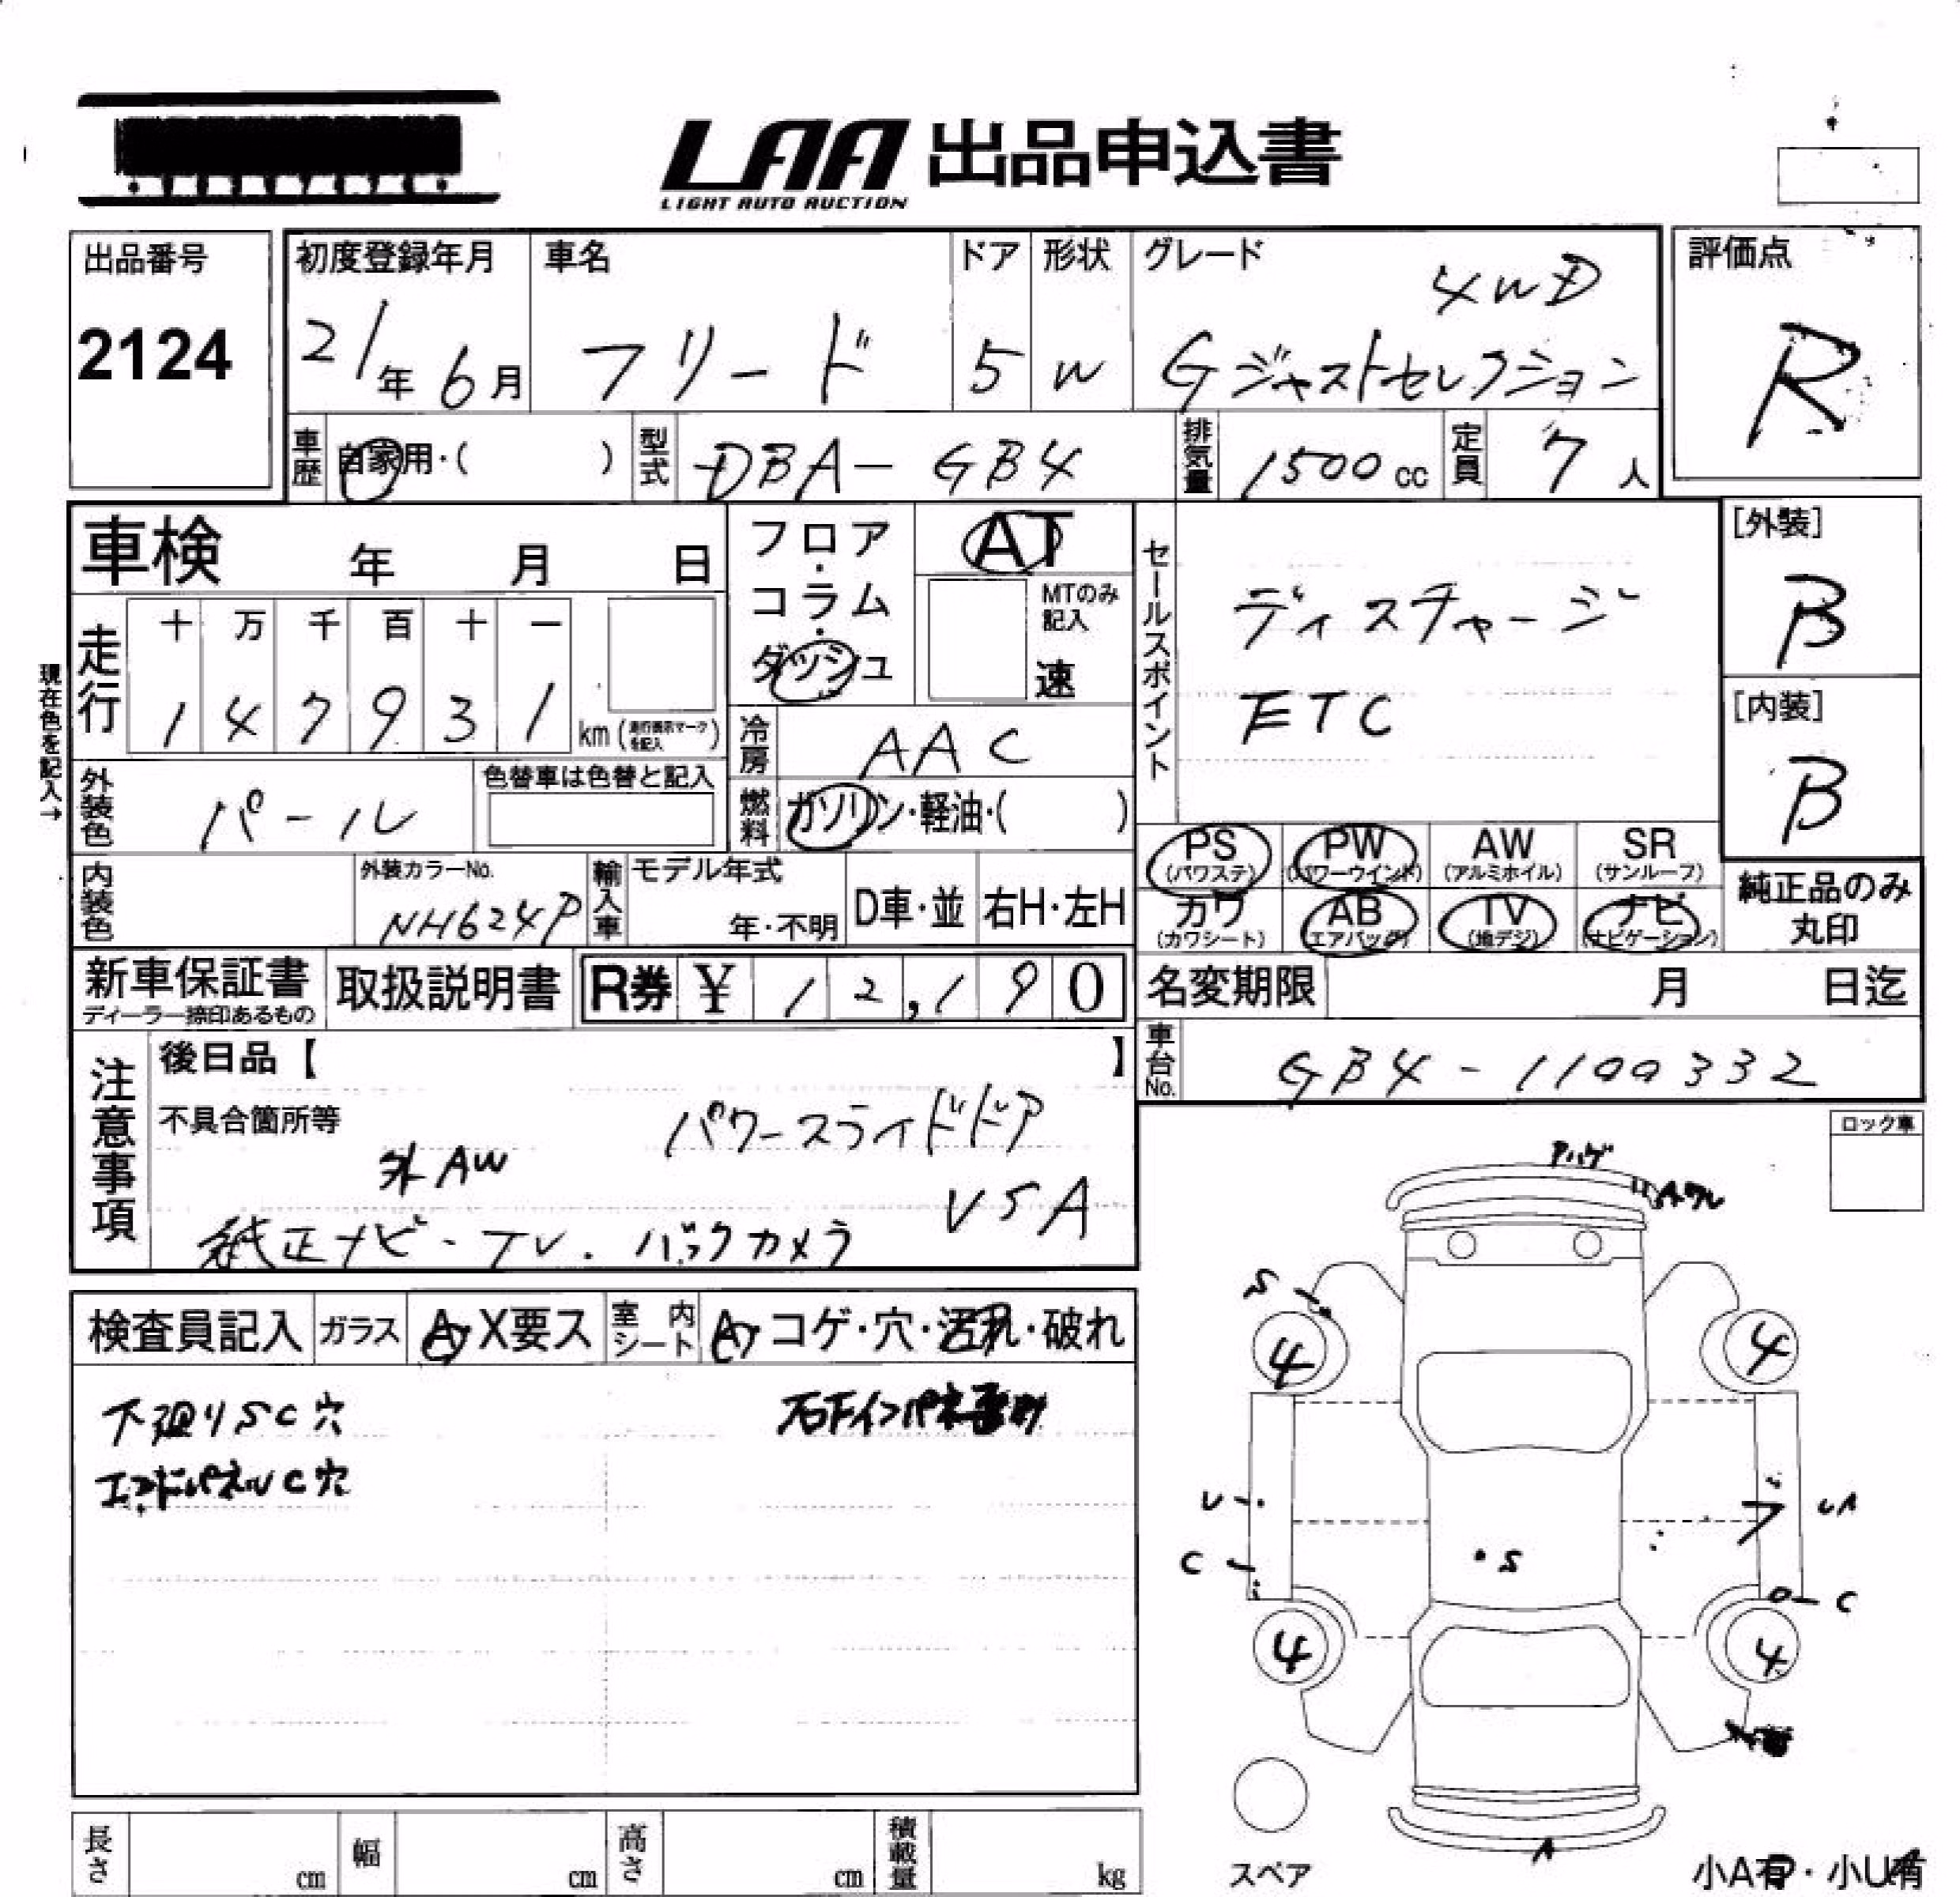 LAA 出品申込書
LIGHT AUTO AUCTION
出品番号
2124
初度登録年月
21年6月
車名
フリード
ドア
5
形状
W
グレード
4WD
Gジャストセレクション
評価点
R
車歴
自家用・( )
型式
DBA-GB4
排気量
1500cc
定員
7人
車検 年 月 日
フロア・コラム・ダッシュ
AT
MTのみ記入
速
走行
十 万 千 百 十 一
1 4 7 9 3 1
km(走行表示マークを記入)
現在色を記入→
冷房
AAC
外装色
パール
色替車は色替と記入
燃料
ガソリン・軽油・( )
内装色
外装カラーNo.
NH624P
輸入車
モデル年式
年・不明
D車・並
右H・左H
新車保証書
ディーラー捺印あるもの
取扱説明書
R券 ¥ 12,190
セールスポイント
ディスチャージ
ETC
[外装]
B
[内装]
B
PS (パワステ)
PW (パワーウインド)
AW (アルミホイル)
SR (サンルーフ)
カワ (カワシート)
AB (エアバッグ)
TV (地デジ)
ナビ (ナビゲーション)
純正品のみ丸印
名変期限 月 日迄
車台No.
GB4-1100332
注意事項
後日品【 】
不具合箇所等
パワースライドドア
外AW
VSA
純正ナビ・TV・バックカメラ
ロック車
検査員記入
ガラス
A・X要ス
室内シート
A・コゲ・穴・汚れ・破れ
下廻りSC穴
エンドパネルC穴
Pハゲ
Aワレ
S
4
4
U
C
S
フ
UA
C
4
4
A
スペア
小A有・小U有
長さ cm
幅 cm
高さ cm
積載量 kg